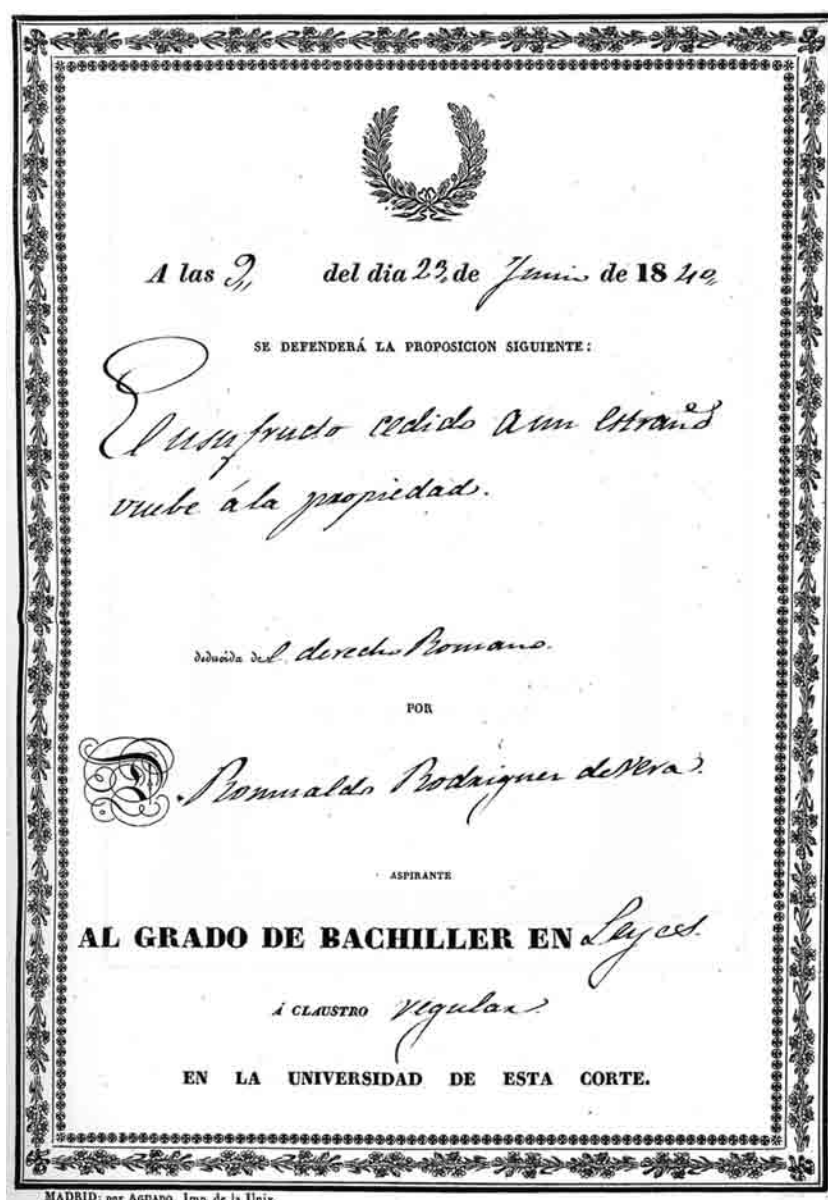 A las 9, del dia 23, de Junio de 1840,
SE DEFENDERÁ LA PROPOSICION SIGUIENTE:
El usufructo cedido a un estraño
vuelve á la propiedad.
deducida del derecho Romano.
POR
D. Romualdo Rodriguez de Vera.
ASPIRANTE
AL GRADO DE BACHILLER EN Leyes.
Á CLAUSTRO regular.
EN LA UNIVERSIDAD DE ESTA CORTE.
MADRID: por AGUADO, Imp. de la Univ.